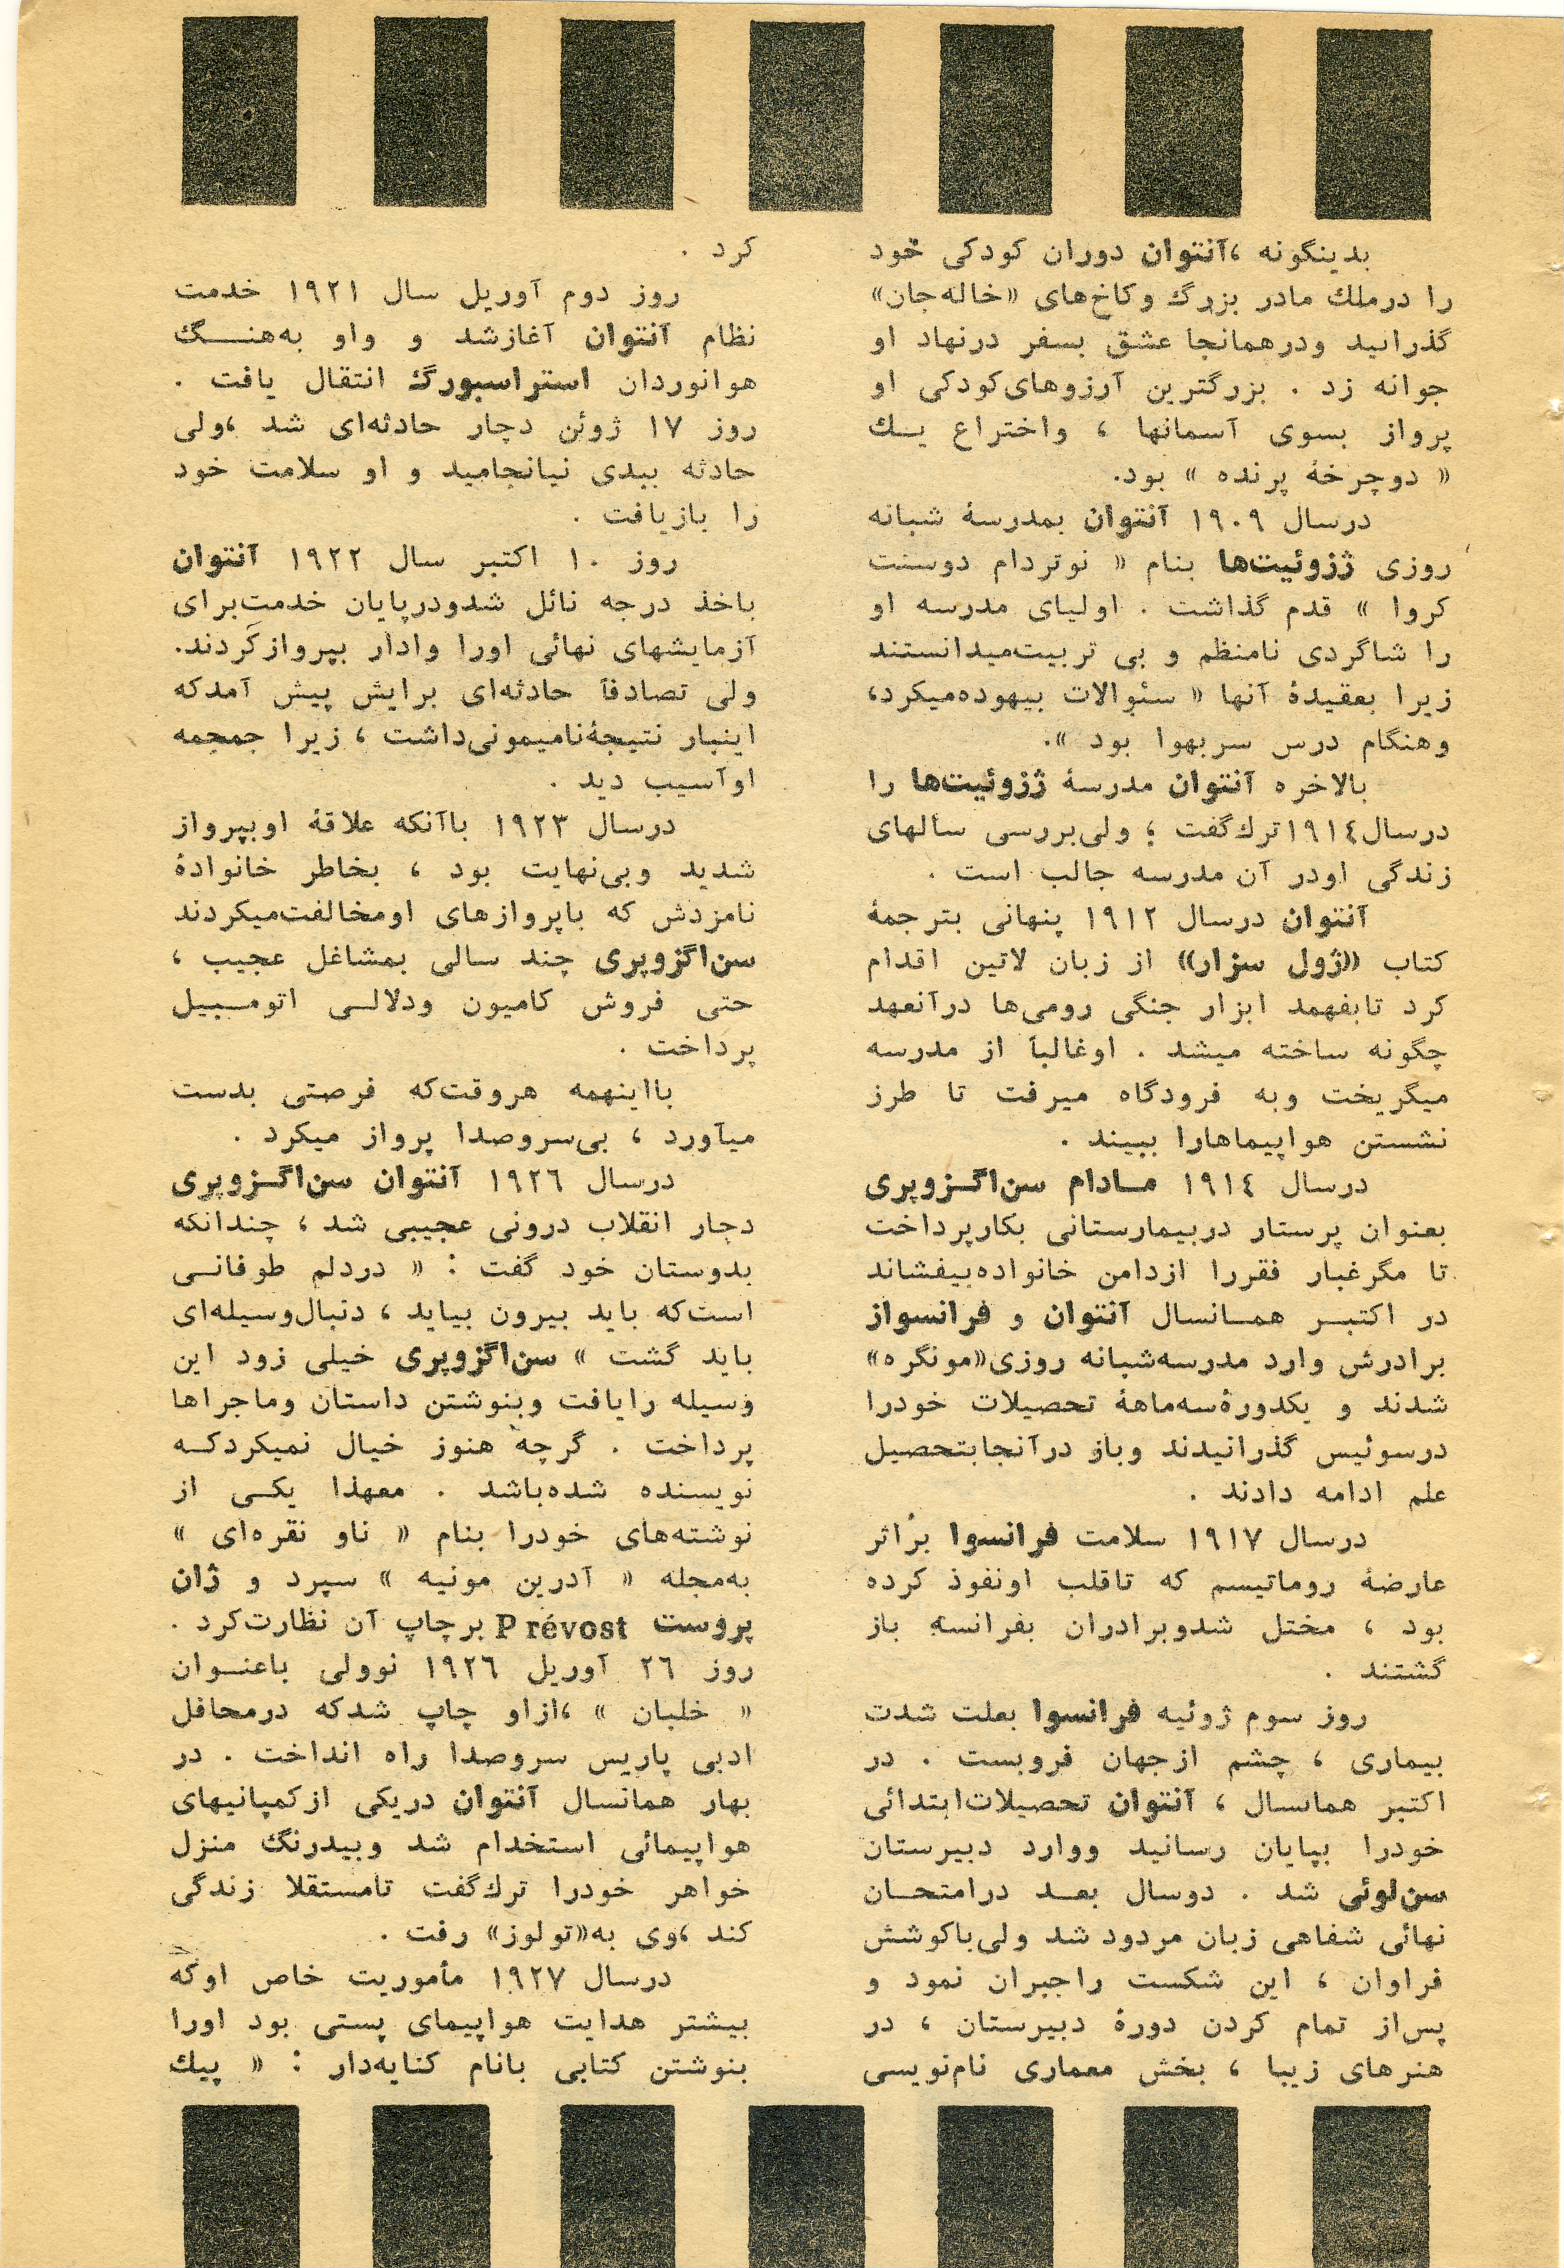 بدینگونه ،آنتوان دوران کودکی خود
را درملك مادر بزرگ وکاخ‌های «خاله‌جان»
گذرانید ودرهمانجا عشق بسفر درنهاد او
جوانه زد . بزرگترین آرزوهای‌کودکی او
پرواز بسوی آسمانها ، واختراع یـك
« دوچرخهٔ پرنده » بود.
درسال ۱۹۰۹ آنتوان بمدرسهٔ شبانه
روزی ژزوئیت‌ها بنام « نوتردام دوسنت
کروا » قدم گذاشت . اولیای مدرسه او
را شاگردی نامنظم و بی تربیت‌میدانستند
زیرا بعقیدهٔ آنها « سئوالات بیهوده‌میکرد،
وهنگام درس سربهوا بود ».
بالاخره آنتوان مدرسهٔ ژزوئیت‌ها را
درسال۱۹۱٤ترك‌گفت ؛ ولی‌بررسی سالهای
زندگی اودر آن مدرسه جالب است .
آنتوان درسال ۱۹۱۲ پنهانی بترجمهٔ
کتاب «ژول سزار» از زبان لاتین اقدام
کرد تابفهمد ابزار جنگی رومی‌ها درآنعهد
چگونه ساخته میشد . اوغالباً از مدرسه
میگریخت وبه فرودگاه میرفت تا طرز
نشستن هواپیماهارا ببیند .
درسال ۱۹۱٤ مـادام سن‌اگـزوپری
بعنوان پرستار دربیمارستانی بکارپرداخت
تا مگرغبار فقررا ازدامن خانواده‌بیفشاند
در اکتبـر همـانسال آنتوان و فرانسواز
برادرش وارد مدرسه‌شبانه روزی«مونگره»
شدند و یکدورهٔ‌سه‌ماههٔ تحصیلات خودرا
درسوئیس گذرانیدند وباز درآنجابتحصیل
علم ادامه دادند .
درسال ۱۹۱۷ سلامت فرانسوا براثر
عارضهٔ روماتیسم که تاقلب اونفوذ کرده
بود ، مختل شدوبرادران بفرانسه باز
گشتند .
روز سوم ژوئیه فرانسوا بعلت شدت
بیماری ، چشم ازجهان فروبست . در
اکتبر همانسال ، آنتوان تحصیلات‌ابتدائی
خودرا بپایان رسانید ووارد دبیرستان
سن‌لوئی شد . دوسال بعـد درامتحـان
نهائی شفاهی زبان مردود شد ولی‌باکوشش
فراوان ، این شکست راجبران نمود و
پس‌از تمام کردن دورهٔ دبیرستان ، در
هنرهای زیبا ، بخش معماری نام‌نویسی
کرد .
روز دوم آوریل سال ۱۹۲۱ خدمت
نظام آنتوان آغازشد و واو به‌هنـگ
هوانوردان استراسبورگ انتقال یافت .
روز ۱۷ ژوئن دچار حادثه‌ای شد ،ولی
حادثه ببدی نیانجامید و او سلامت خود
را بازیافت .
روز ۱۰ اکتبر سال ۱۹۲۲ آنتوان
باخذ درجه نائل شدودرپایان خدمت‌برای
آزمایشهای نهائی اورا وادار بپروازکردند.
ولی تصادفاً حادثه‌ای برایش پیش آمدکه
اینبار نتیجهٔ‌نامیمونی‌داشت ، زیرا جمجمه
اوآسیب دید .
درسال ۱۹۲۳ باآنکه علاقهٔ اوبپرواز
شدید وبی‌نهایت بود ، بخاطر خانوادهٔ
نامزدش که باپروازهای اومخالفت‌میکردند
سن‌اگزوپری چند سالی بمشاغل عجیب ،
حتی فروش کامیون ودلالـی اتومـبیل
پرداخت .
بااینهمه هروقت‌که فرصتی بدست
میآورد ، بی‌سروصدا پرواز میکرد .
درسال ۱۹۲٦ آنتوان سن‌اگـزوپری
دچار انقلاب درونی عجیبی شد ، چندانکه
بدوستان خود گفت : « دردلم طوفانـی
است‌که باید بیرون بیاید ، دنبال‌وسیله‌ای
باید گشت » سن‌اگزوپری خیلی زود این
وسیله رایافت وبنوشتن داستان وماجراها
پرداخت . گرچه هنوز خیال نمیکردکـه
نویسنده شده‌باشد . معهذا یکـی از
نوشته‌های خودرا بنام « ناو نقره‌ای »
به‌مجله « آدرین مونیه » سپرد و ژان
پروست Prévost برچاپ آن نظارت‌کرد .
روز ۲٦ آوریل ۱۹۲٦ نوولی باعنـوان
« خلبان » ،ازاو چاپ شدکه درمحافل
ادبی پاریس سروصدا راه انداخت . در
بهار همانسال آنتوان دریکی ازکمپانیهای
هواپیمائی استخدام شد وبیدرنگ منزل
خواهر خودرا ترك‌گفت تامستقلا زندگی
کند ،وی به«تولوز» رفت .
درسال ۱۹۲۷ مأموریت خاص اوکه
بیشتر هدایت هواپیمای پستی بود اورا
بنوشتن کتابی بانام کنایه‌دار : « پیك